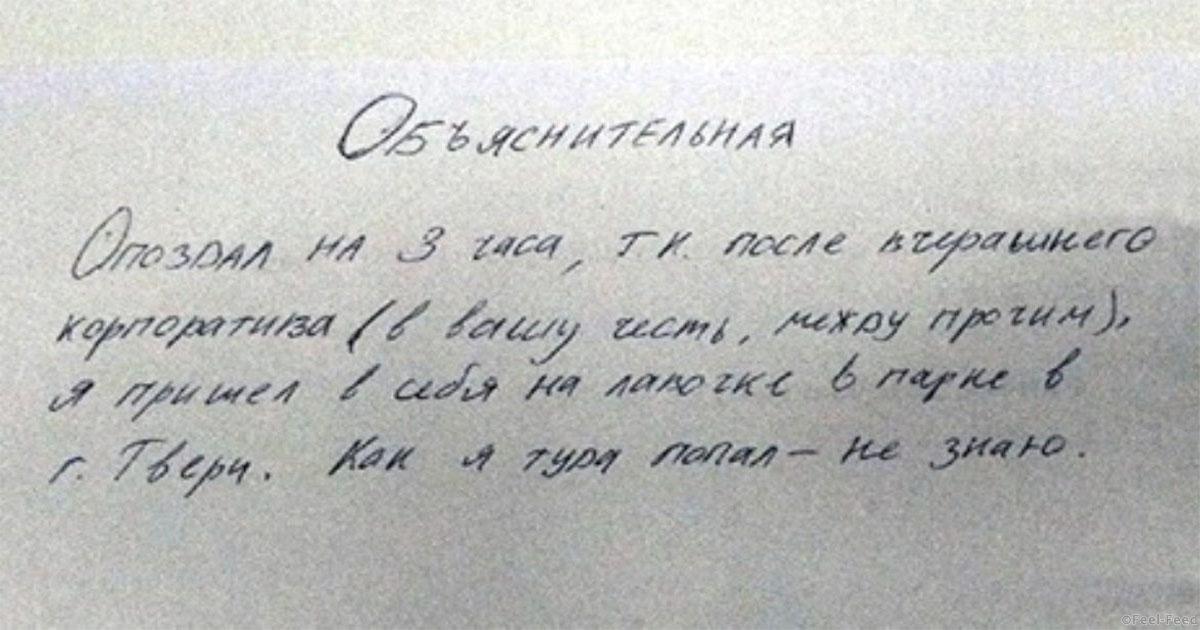 Объяснительная
Опоздал на 3 часа, т.к. после вчерашнего
корпоратива (в вашу честь, между прочим),
я пришел в себя на лавочке в парке в
г. Твери. Как я туда попал – не знаю.
©Feel-Feed